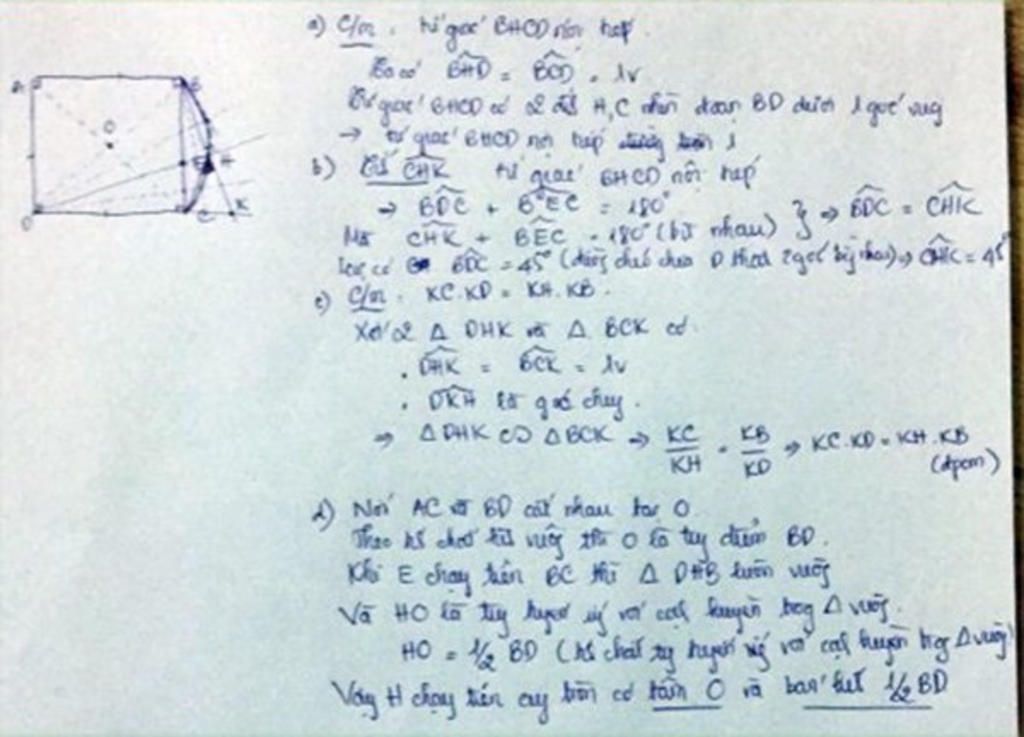 a) C/m : tứ giác BHCD nội tiếp.
Ta có BHD = BCD = 1v
Tứ giác BHCD có 2 đỉnh H, C nhìn đoạn BD dưới 1 góc vuông
→ tứ giác BHCD nội tiếp đường tròn
b) CHK tứ giác BHCD nội tiếp
→ BDC + BEC = 180°
Mà CHK + BEC = 180° (bù nhau) } ⇒ BDC = CHK
BDC = 45° ⇒ CHK = 45°
c) C/m : KC.KD = KH.KB.
Xét 2 Δ DHK và Δ BCK có
. DHK = BCK = 1v
. DKH là góc chug.
⇒ Δ DHK ∽ Δ BCK ⇒ KC/KH = KB/KD ⇒ KC.KD = KH.KB
(đpcm)
d) Nối AC và BD cắt nhau tại O
Theo t/c hình vuông thì O là trug điểm BD.
Khi E chạy trên BC thì Δ DHB luôn vuông
Và HO là trug tuyến ứg với cạh huyền trog Δ vuôg.
HO = 1/2 BD (t/c trug tuyến ứg với cạh huyền trog Δ vuôg)
Vậy H chạy trên cug tròn có tâm O và bán kính 1/2 BD
A
B
O
E
H
D
C
K